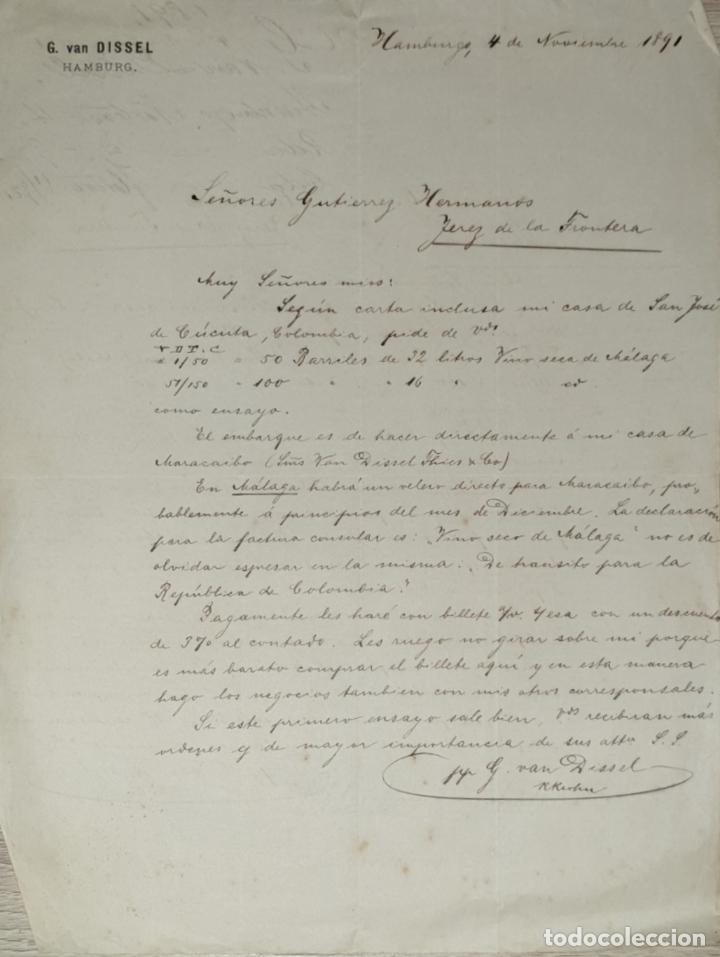 G. van DISSEL
HAMBURG.
Hamburgo, 4 de Noviembre 1891
Señores Gutierrez Hermanos
Jerez de la Frontera
Muy Señores mios:
Según carta inclusa mi casa de San José
de Cúcuta, Colombia, pide de Vds
V D T. C
" 1/50 " 50 Barriles de 32 litros Vino seco de Málaga
51/150 " 100 " " 16 " id
como ensayo.
El embarque es de hacer directamente á mi casa de
Maracaibo (Van Dissel Thies & Co)
En Málaga habrá un velero directo para Maracaibo, pro-
bablemente á principios del mes de Diciembre. La declaración
para la factura consular es: „Vino seco de Málaga" no es de
olvidar espresar en la misma: „De transito para la
República de Colombia."
Pagamente les haré con billete esa con un descuento
de 3% al contado. Les ruego no girar sobre mi porque
es más barato comprar el billete aquí y en esta manera
hago los negocios tambien con mis otros corresponsales.
Si este primero ensayo sale bien, Vds recibiran más
ordenes y de mayor importancia de sus atto S. S.
pp G. van Dissel
todocoleccion
todocoleccion.net